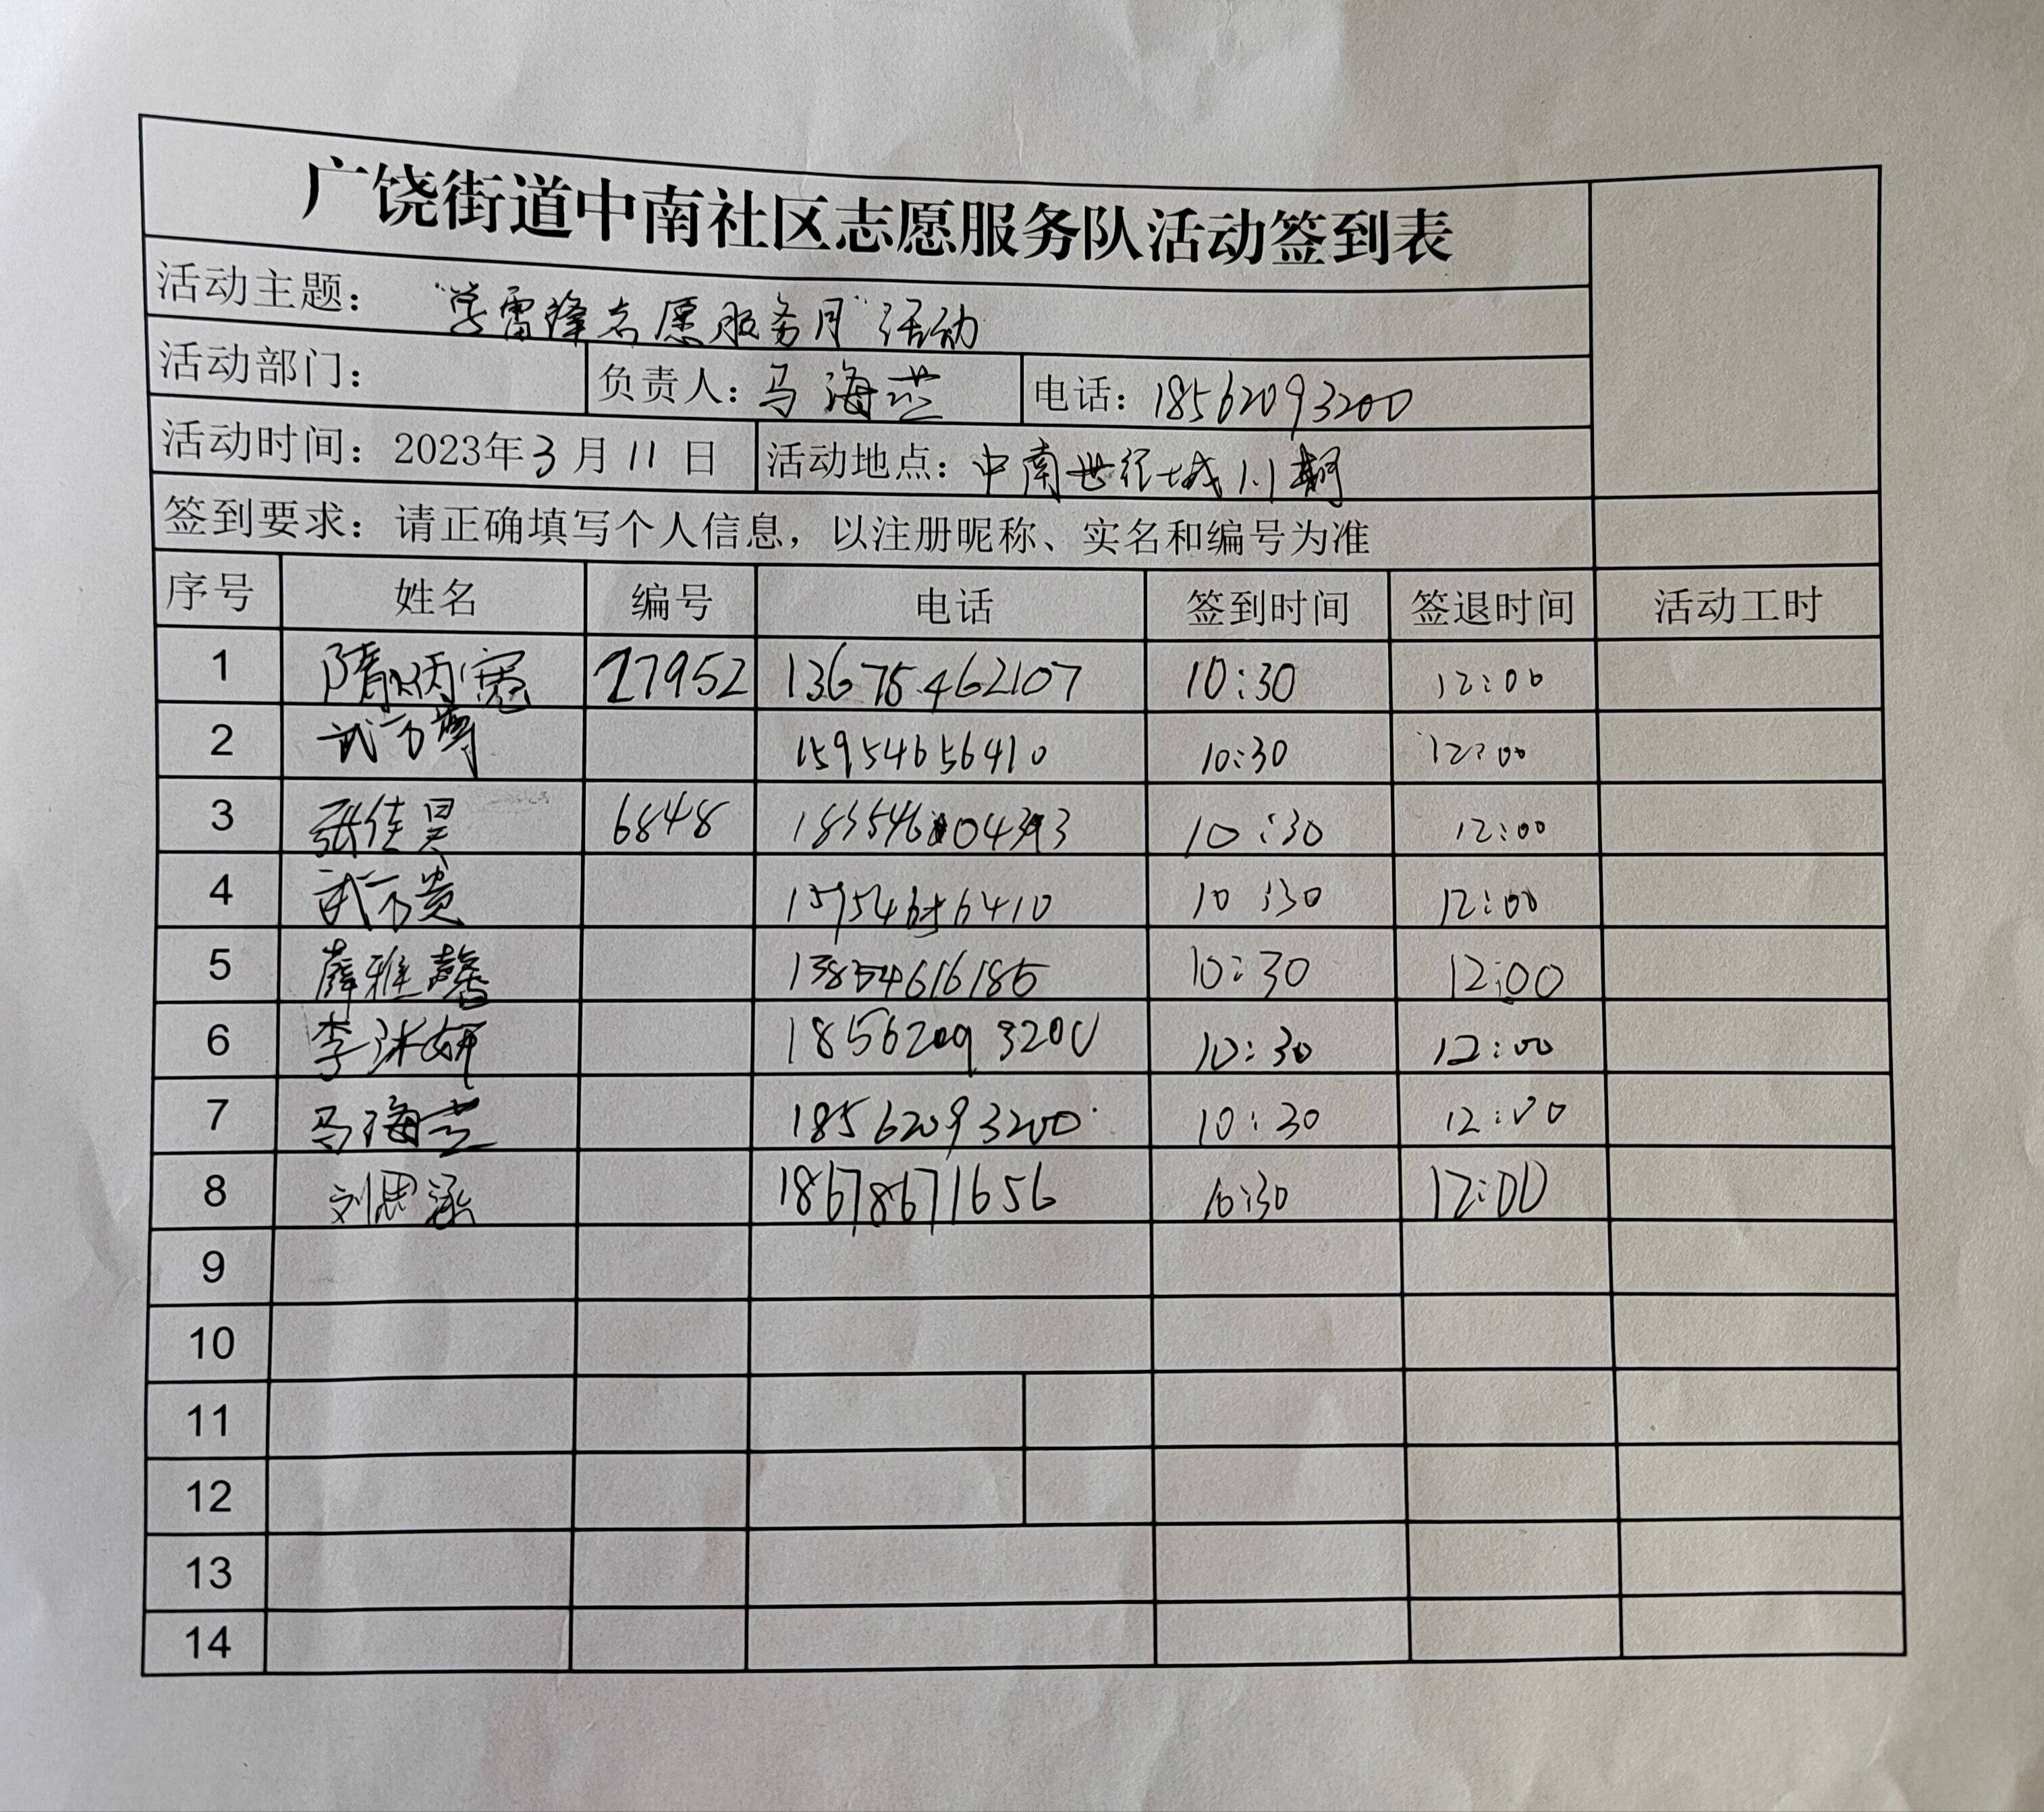 广饶街道中南社区志愿服务队活动签到表
活动主题： “学雷锋志愿服务月”活动
活动部门： 负责人：马海芸 电话：18562093200
活动时间：2023年3月11日 活动地点：中南世纪城1.1期
签到要求：请正确填写个人信息，以注册昵称、实名和编号为准
序号 姓名 编号 电话 签到时间 签退时间 活动工时
1 隋炳寬 27952 13675462107 10:30 12:00
2 武方 15954656410 10:30 12:00
3 张佳昊 6848 10:30 12:00
4 武方贵 15954656410 10:30 12:00
5 薛雅馨 13854616185 10:30 12:00
6 李沐妍 18562093200 10:30 12:00
7 马海芸 18562093200 10:30 12:00
8 刘思涵 18678671656 10:30 12:00
9
10
11
12
13
14